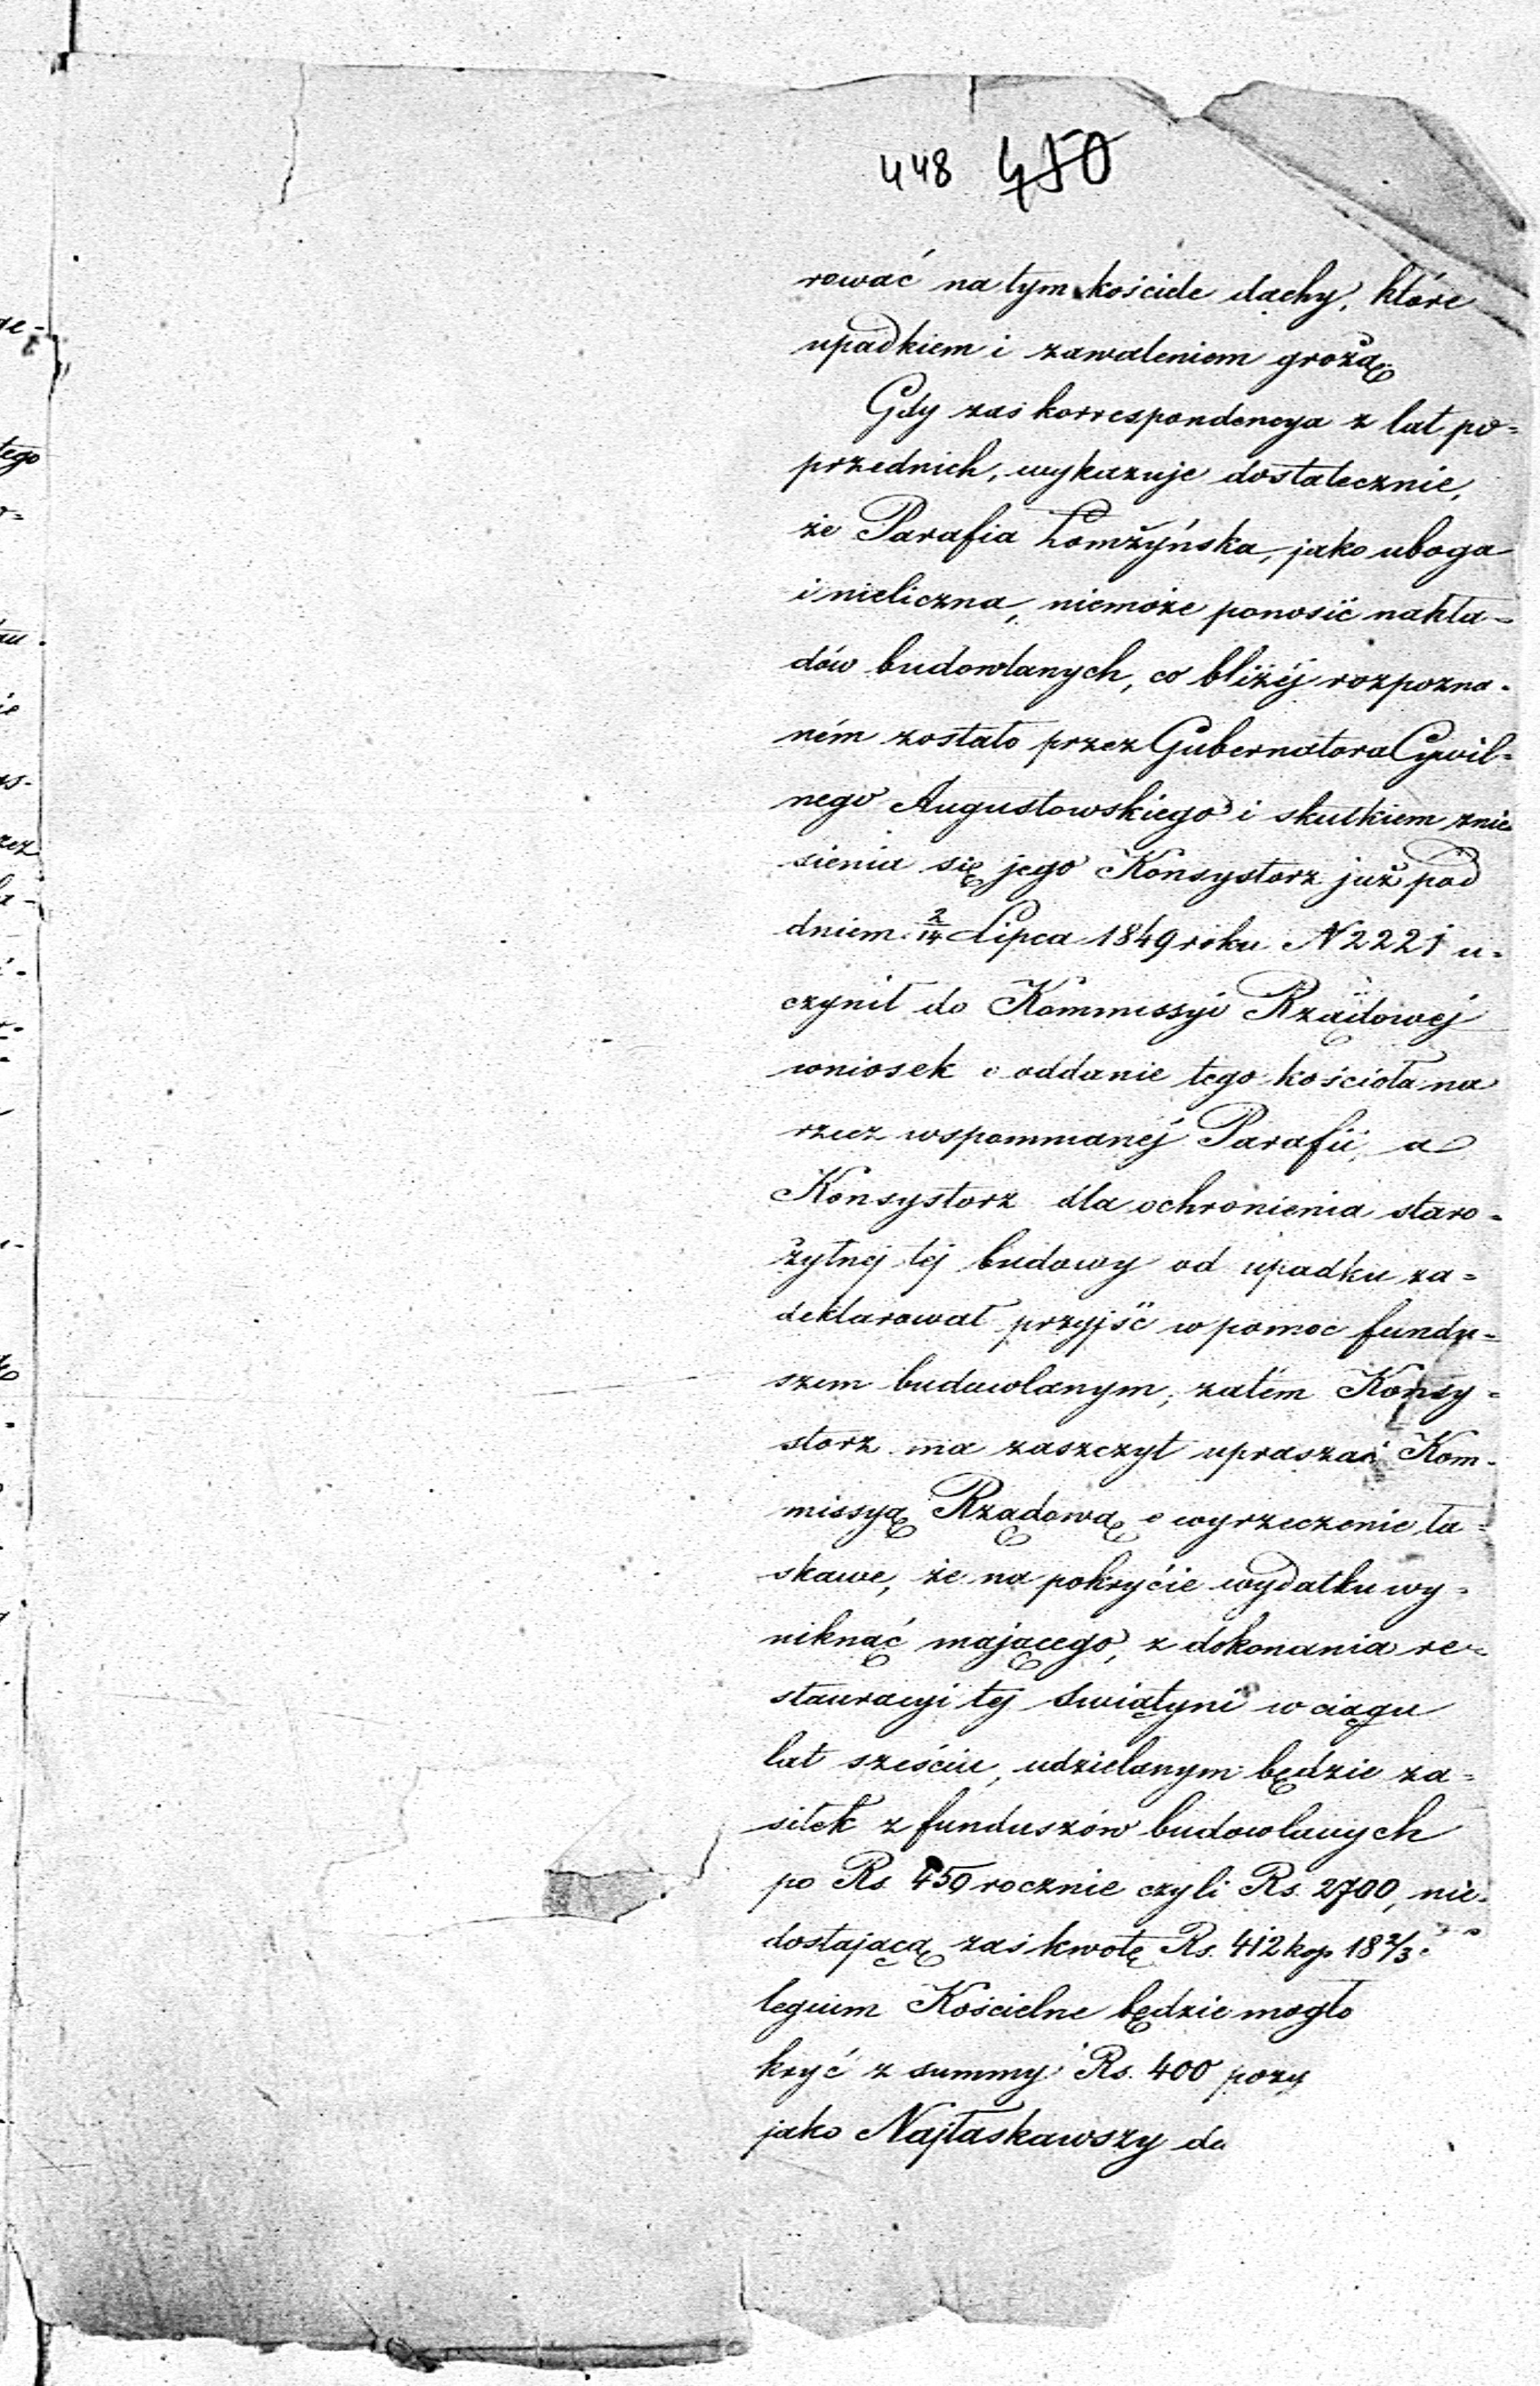 448 450
rować na tym kościele dachy, które
upadkiem i zawaleniem grożą.
Gdy zaś korrespondencya z lat po=
przednich, wykazuje dostatecznie,
że Parafia Łomżyńska, jako uboga
i nieliczna, niemoże ponosić nakła=
dów budowlanych, co bliżéj rozpozna=
ném zostało przez Gubernatora Cywil=
nego Augustowskiego i skutkiem znie
sienia się jego Konsystorz już pod
dniem 2/14 Lipca 1849 roku N 2221 u=
czynił do Kommissyi Rządowéj
wniosek o oddanie tego kościoła na
rzecz wspommanéj Parafii, a
Konsystorz dla ochronienia staro=
żytnej tej budowy od upadku za=
deklarował przyjść w pomoc fundu=
szem budowlanym, zatém Konsy=
storz ma zaszczyt upraszać Kom=
missyą Rządową o wyrzeczenie ła=
skawe, że na pokrycie wydatku wy=
niknąć mającego, z dokonania re=
stauracyi tej Swiątyni w ciągu
lat sześciu, udzielanym będzie za=
siłek z funduszów budowlanych
po Rs. 450 rocznie czyli Rs. 2700, nie=
dostającą zaś kwotę Rs. 412 kop. 18 2/3
legium Kościelne będzie mogło
kryć z summy Rs. 400 pozy
jako Najłaskawszy da
ge=
tego
rez